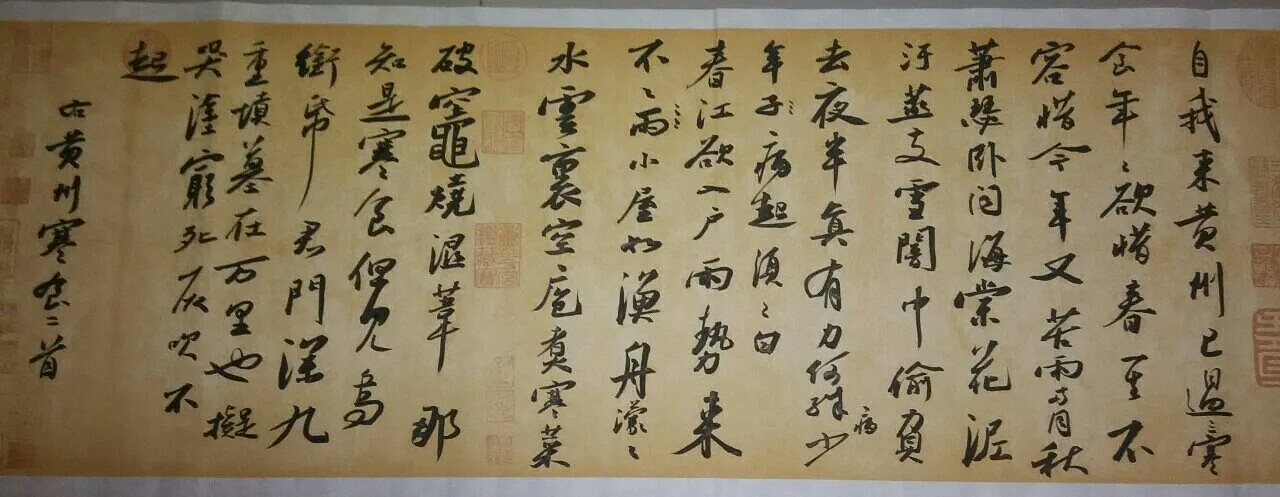 自我來黃州已過三寒
食年〻欲惜春〻去不
容惜今年又苦雨兩月秋
蕭瑟卧聞海棠花泥
汙燕支雪闇中偷負
去夜半真有力何殊病少
年子病起須已白
春江欲入户雨勢來
不已雨小屋如漁舟濛〻
水雲裏空庖煮寒菜
破竈燒濕葦那
知是寒食但見烏
銜帋君門深九
重墳墓在万里也擬
哭塗窮死灰吹不
起
右黃州寒食二首